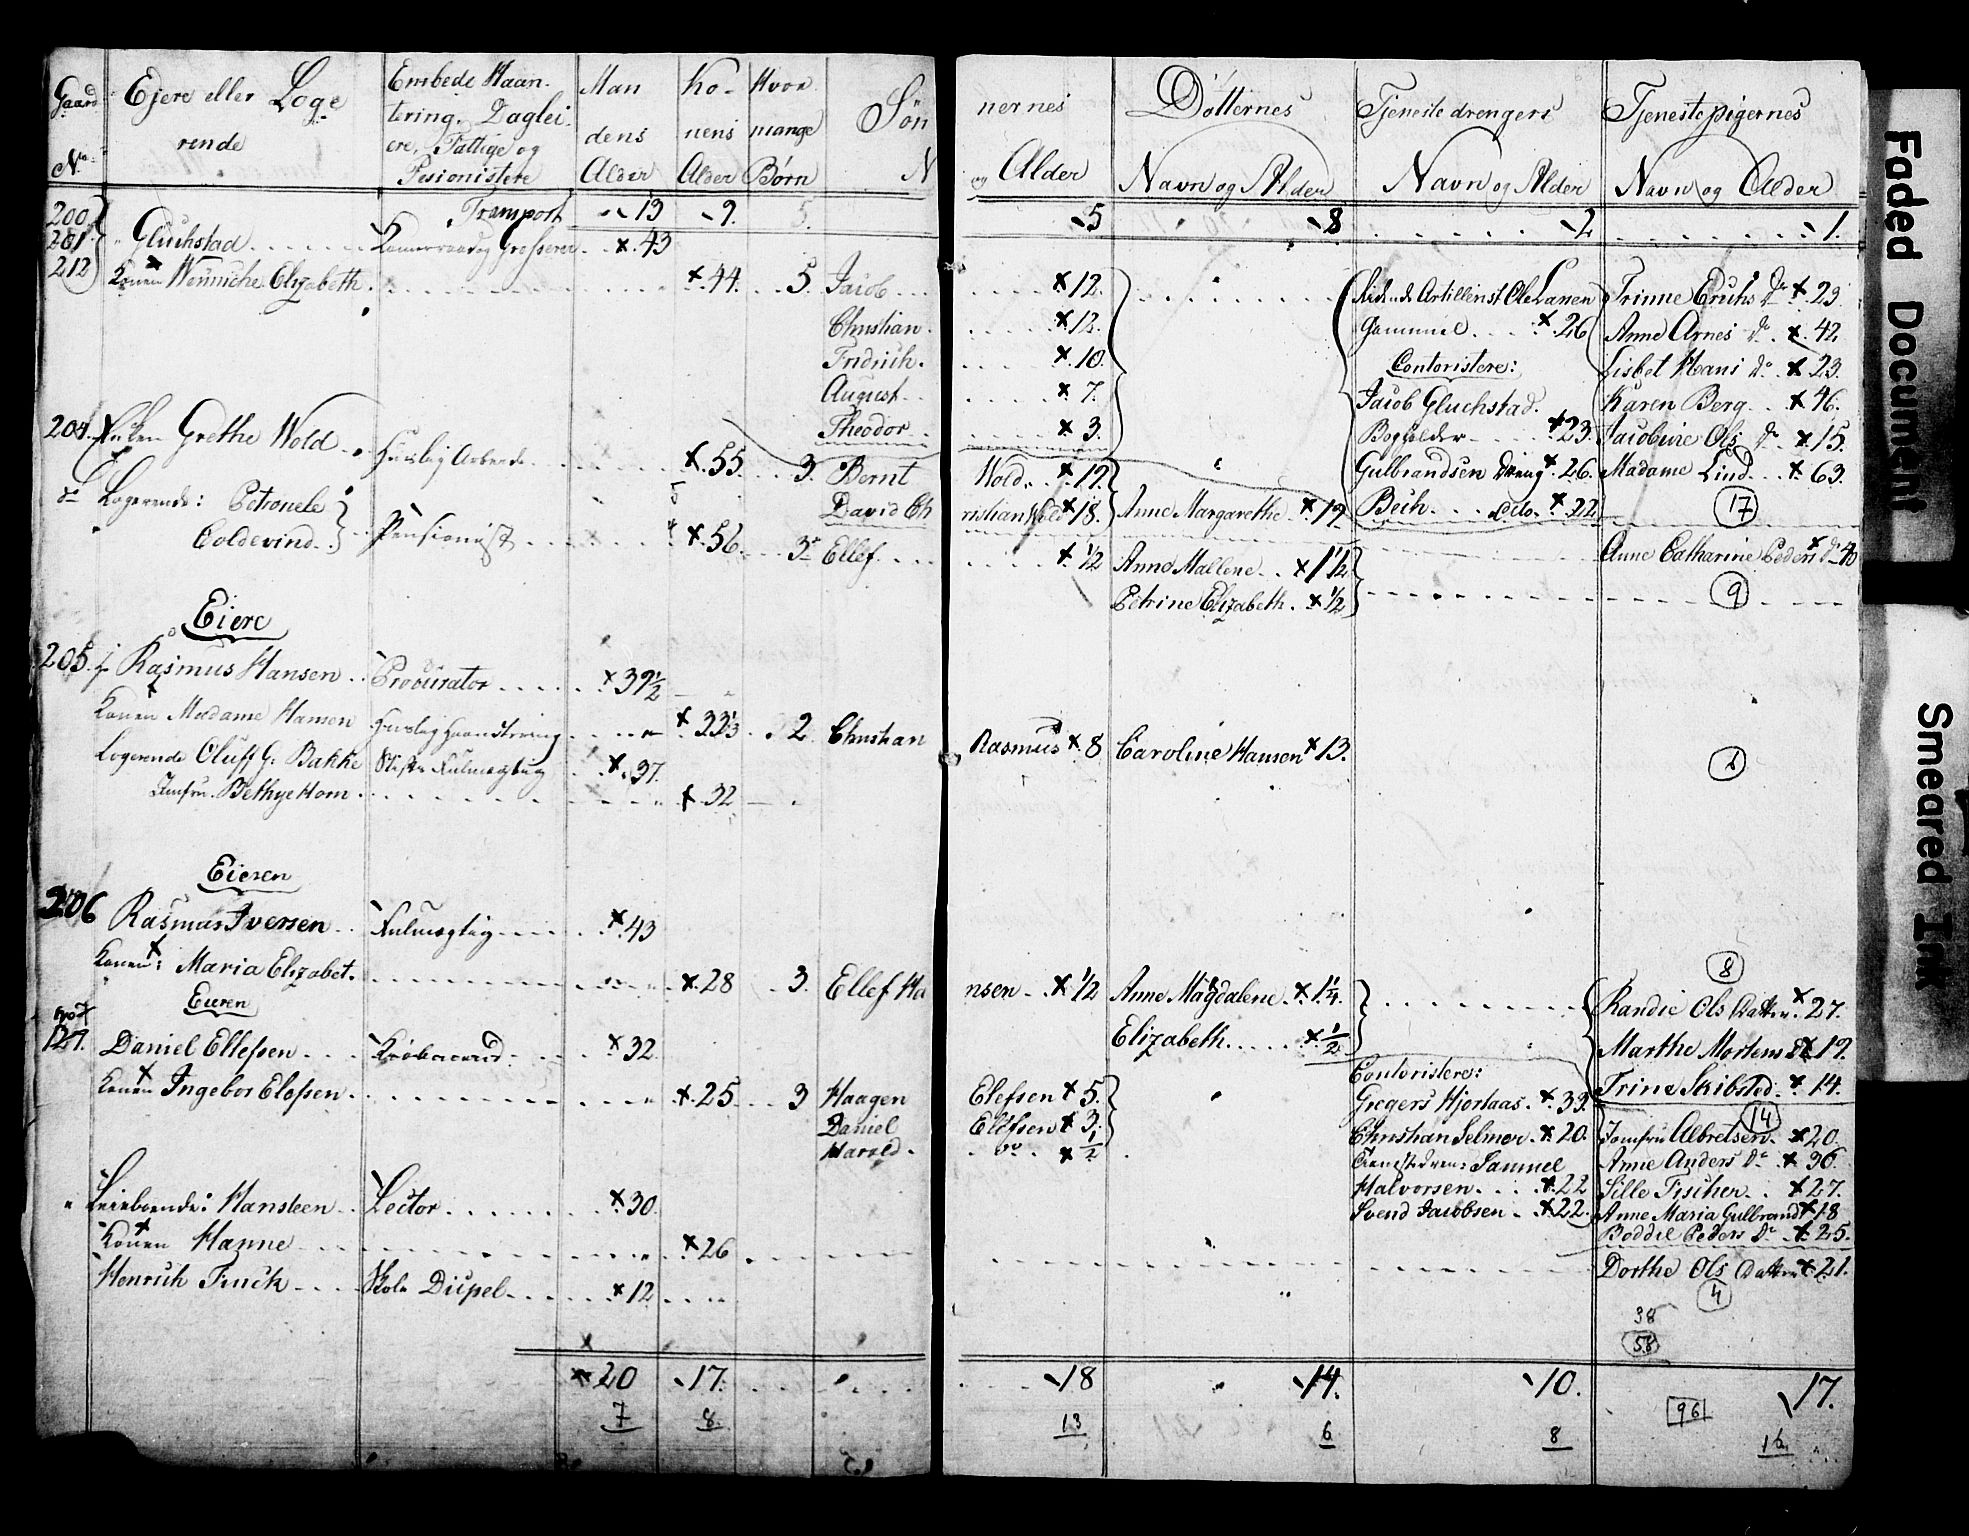 Gaard No. Ejere eller Loge rende Embede Haan- tering, Daglei- ere, Fattige og Pesionistere Man dens Alder Ko- nens Alder Hvor mange Børn Søn nernes N og Alder Dötternes Navn og Alder Tjeneste drengers Navn og Alder Tjenestepigernes Navn og Alder
Transport 13 9. 5. 5 8 2 1.
200
201 Gluchstad Grosserer x 43
212 Konen Wennicke Elizabeth x 44. 5. Jacob x 12. Ridende Artillerist Ole Lanen Trinne Erichs Dr x 23
Christian x 12. Gammel x 26 Anne Arnes Dr x 42
Fridrich x 10. Contoristere: Lisbet Hans Dr x 23.
August x 7. Jacob Gluchstad. Karen Berg x 46.
Theodor x 3. Bogholder x 23. Jacobine Ols Dr x 15.
204. Enken Grethe Wold Huuslig Arbeide x 55. 3. Bernt Wold x 19. Gulbrandsen Dreng x 26. Madame Lind x 63.
do Logerende: Petronele David Christian Wold x 18. Anne Margarethe x 19 Beih dito x 22 17
Coldevind Pensionist x 56 3 Ellef x 1/2 Anne Mallene x 1 1/2 Anne Catharine Peders Dr 40
Petrine Elizabeth x 1/2 9
Eiere
205. Rasmus Hansen Procurator x 39 1/2
Konen Madame Hansen Huuslig Haandtering x 33 1/3 2 Christian Rasmus x 8 Caroline Hansen x 13.
Logerende Oluff G. Bakke Stifts Fulmegtug x 37.
Jomfru Bethye Horn x 32
Eieren
206 Rasmus Iversen Fulmegtig x 43
8
Konen: Maria Elizabet x 28 3. Ellef Hansen x 1/2 Anne Magdalene x 1 1/4. Randie Ols Datter x 27.
Eieren
Elizabeth x 1/2
127. Daniel Ellefsen x 32 Marthe Mortens Dr x 19.
Contoristere: Trine Skibsted x 14.
Konen Ingebor Elefsen x 25 3 Haagen Elefsen x 5. Gregers Hjortaas x 33. 14
Daniel Elefsen x 3. Christhan Selmer x 20. Jomfru Albretsen x 20.
Harald do x 1/2 Tienestedreng Samuel Anne Anders Dr x 36.
Halvorsen x 22 Sille Fischer x 27.
Leieboende: Hansteen Lector x 30 Svend Jacobsen x 22. Anne Maria Gulbrands x 18
Konen Hanne x 26 Boddil Peders Dr x 25.
Henrich Frich Skole Disipel x 12 Dorthe Ols Datter x 21.
4
38
58
x 20 17. 18 14. 10. 17.
7 8. 13 6 8 96 16
Faded Document
Smeared Ink